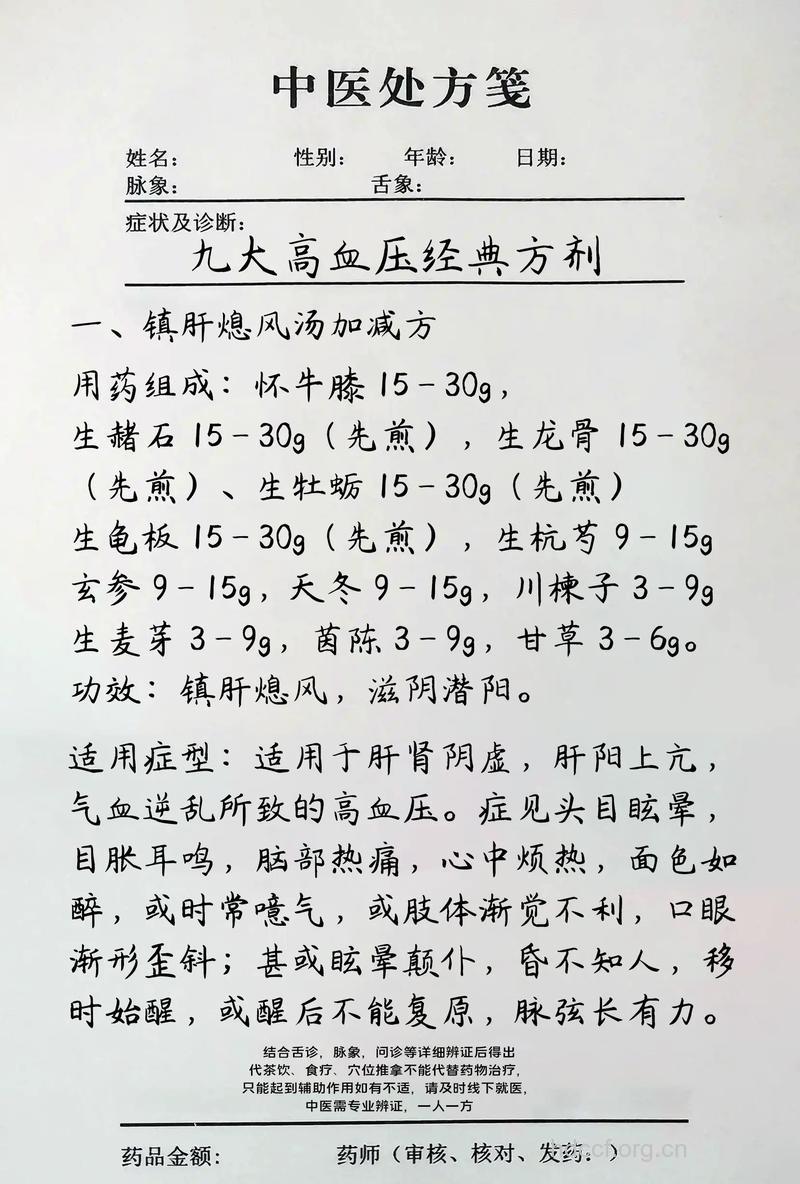 中医处方笺
姓名： 性别： 年龄： 日期：
脉象： 舌象：
症状及诊断：
九大高血压经典方剂
一、镇肝熄风汤加减方
用药组成：怀牛膝 15－30g，
生赭石 15－30g（先煎），生龙骨 15－30g
（先煎）、生牡蛎 15－30g（先煎）
生龟板 15－30g（先煎），生杭芍 9－15g
玄参 9－15g，天冬 9－15g，川楝子 3－9g
生麦芽 3－9g，茵陈 3－9g，甘草 3－6g。
功效：镇肝熄风，滋阴潜阳。
适用症型：适用于肝肾阴虚，肝阳上亢，
气血逆乱所致的高血压。症见头目眩晕，
目胀耳鸣，脑部热痛，心中烦热，面色如
醉，或时常噫气，或肢体渐觉不利，口眼
渐形歪斜；甚或眩晕颠仆，昏不知人，移
时始醒，或醒后不能复原，脉弦长有力。
结合舌诊，脉象，问诊等详细辨证后得出
代茶饮、食疗、穴位推拿不能代替药物治疗，
只能起到辅助作用如有不适，请及时线下就医，
中医需专业辨证，一人一方
药品金额： 药师（审核、核对、发药：）